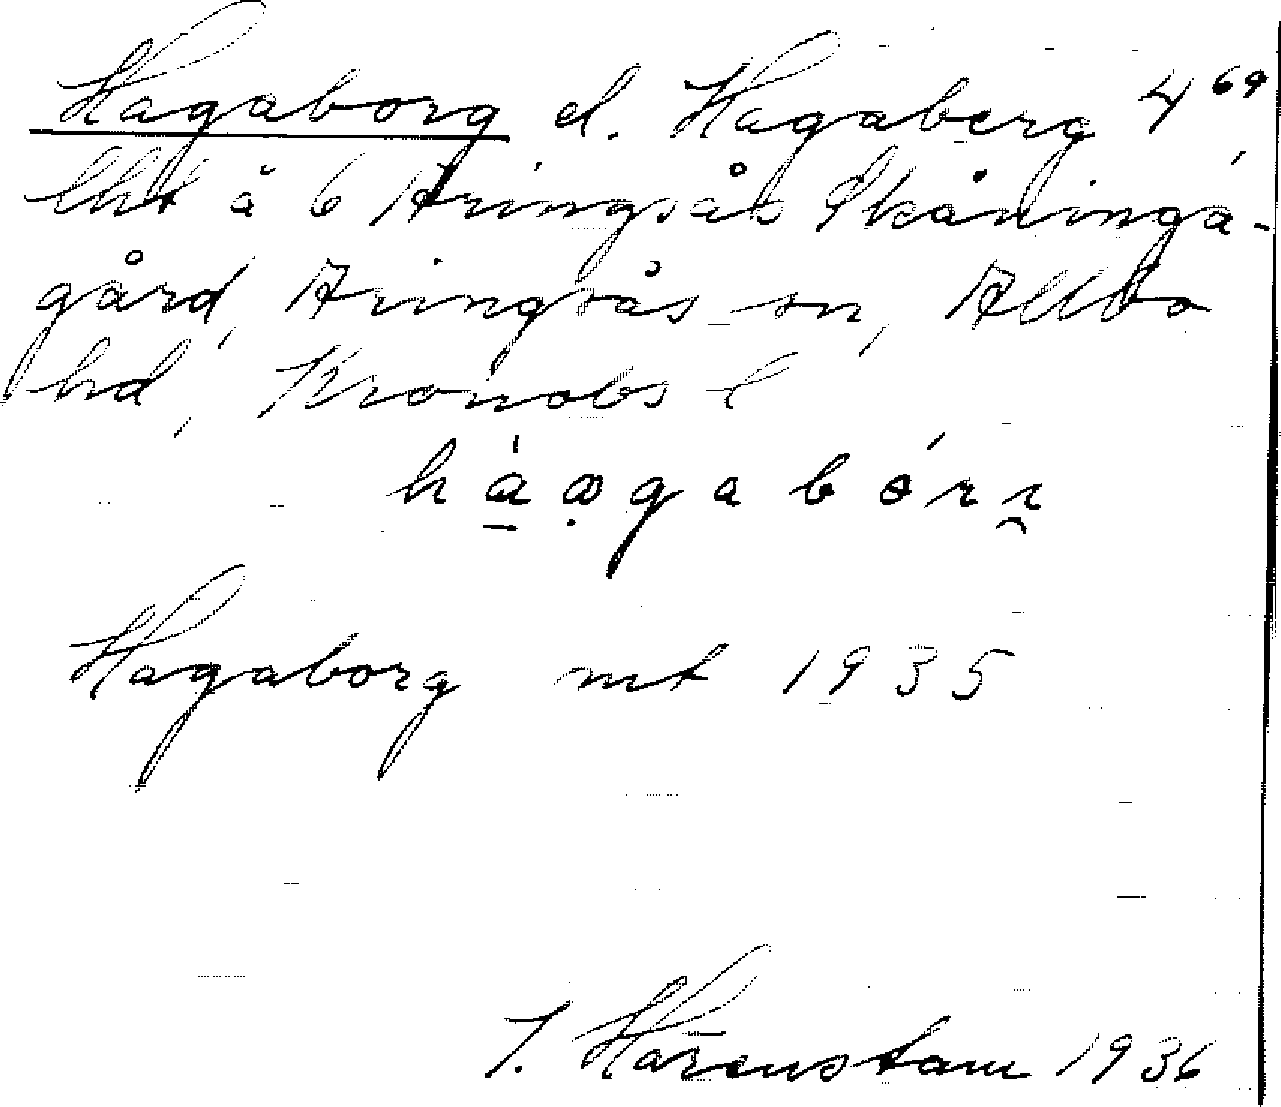 Hagaborg el. Hagaberg 4⁶⁹,
lht å 6 Aringsås Skåninga-
gård, Aringsås sn, Allbo
hd, Kronobs l
Hagaborg mt 1935
J. Härenstam 1936